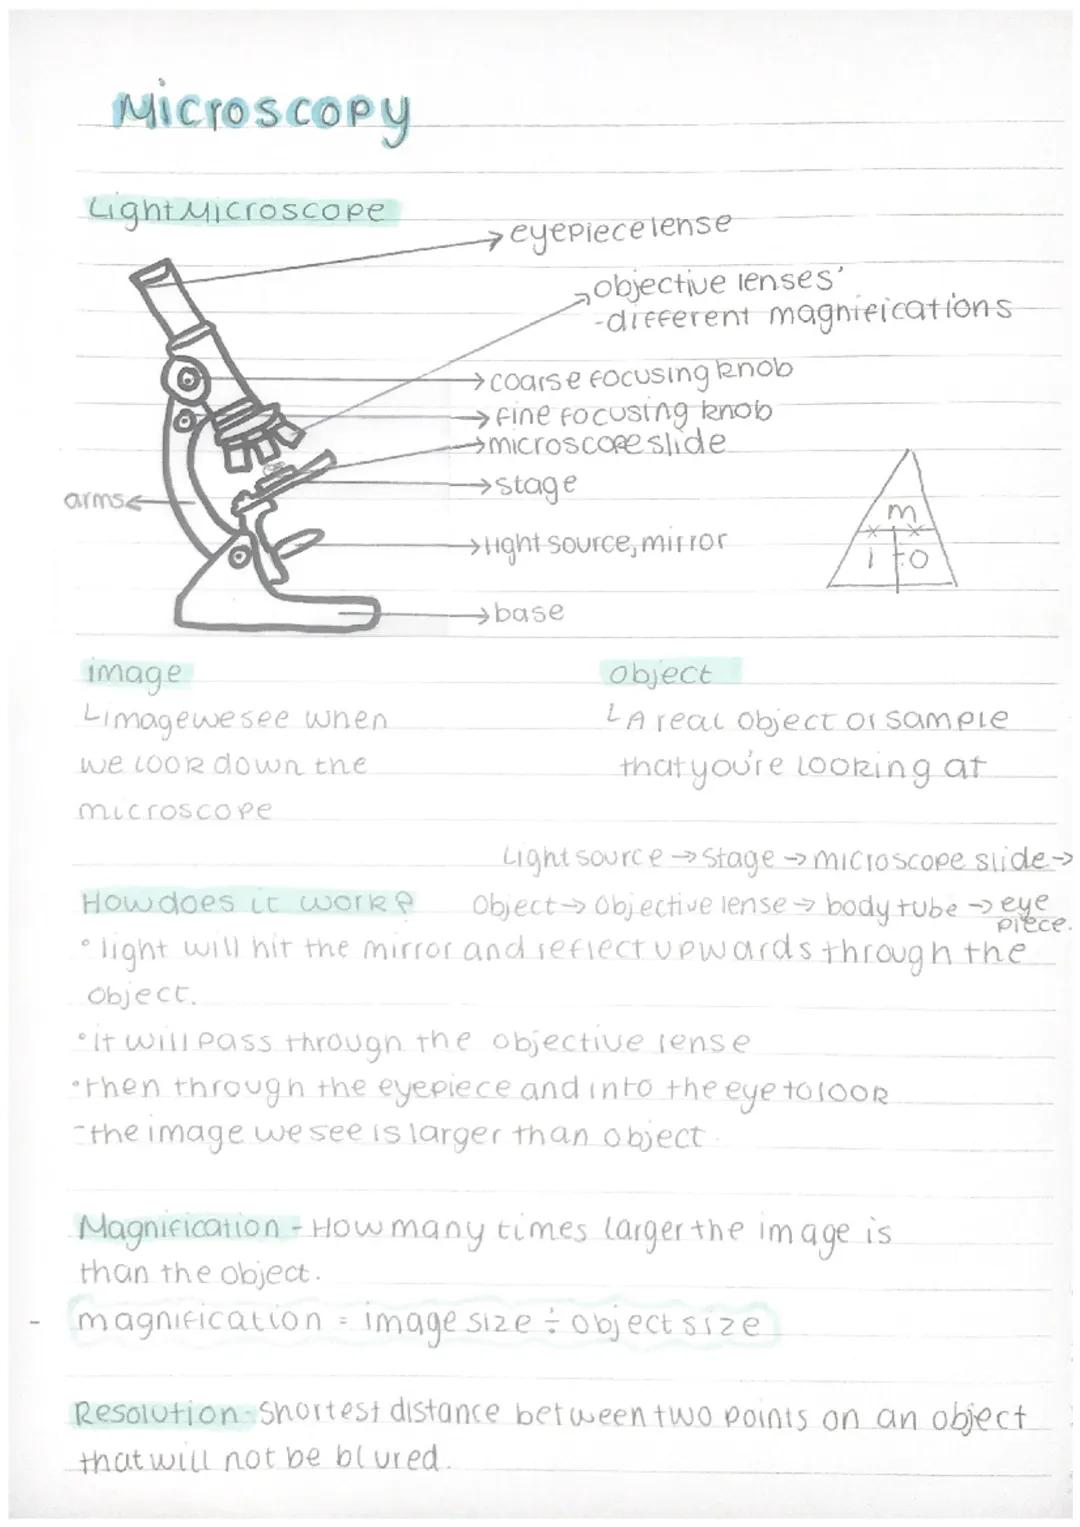 Microscopy
Light Microscope
eyepiece lense
objective lenses'
-different magnifications
coarse focusing knob
fine focusing knob
microscope slide
arms
stage
m
light source, mirror
I ÷ O
base
image
object
Limage we see when
L A real object or sample
we look down the
that you're looking at
microscope
Light source → Stage → microscope slide →
How does it work?
Object → Objective lense → body tube → eye
piece.
• light will hit the mirror and reflect upwards through the
object.
• it will pass through the objective lense
• then through the eyepiece and into the eye to look
- the image we see is larger than object.
Magnification - How many times larger the image is
than the object.
- magnification = image size ÷ object size
Resolution - Shortest distance between two points on an object
that will not be blured.